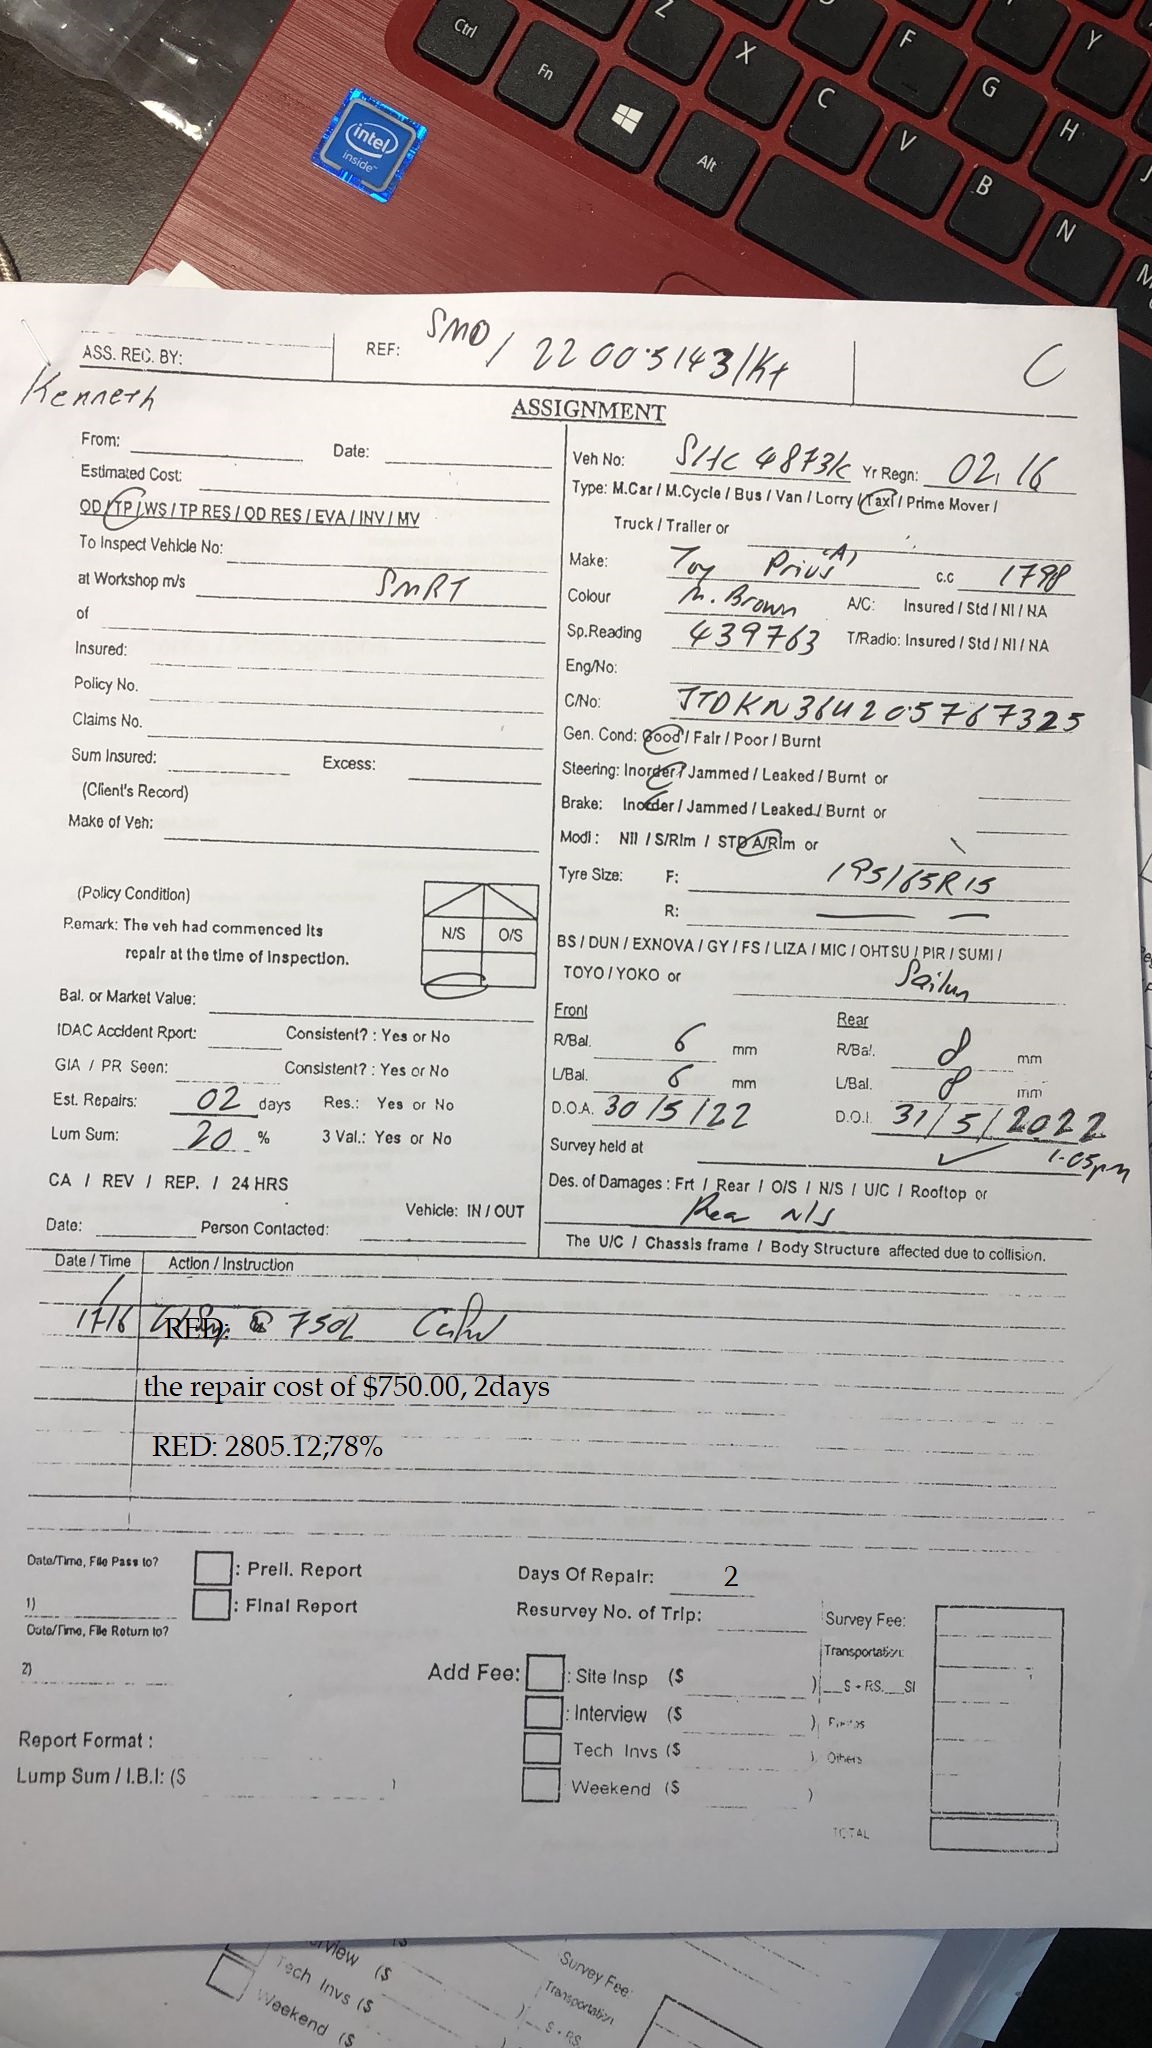 Ctrl
Fn
Alt
Z
X
C
V
B
N
M
F
G
H
J
Y
intel
inside
ASS. REC. BY:
Kenneth
REF: SMO / 22005143/Kt
C
ASSIGNMENT
From: Date:
Estimated Cost:
OD / TP / WS / TP RES / OD RES / EVA / INV / MV
To Inspect Vehicle No:
at Workshop m/s SMRT
of
Insured:
Policy No.
Claims No.
Sum Insured: Excess:
(Client's Record)
Make of Veh:
(Policy Condition)
Remark: The veh had commenced its
repair at the time of inspection.
N/S O/S
Bal. or Market Value:
IDAC Accident Rport: Consistent? : Yes or No
GIA / PR Seen: Consistent? : Yes or No
Est. Repairs: 02 days Res.: Yes or No
Lum Sum: 20 % 3 Val.: Yes or No
CA / REV / REP. / 24 HRS
Vehicle: IN / OUT
Date: Person Contacted:
Veh No: SHC 4873K Yr Regn: 02.16
Type: M.Car / M.Cycle / Bus / Van / Lorry / Taxi / Prime Mover /
Truck / Trailer or
Make: Toy Prius (A) c.c 1798
Colour M. Brown A/C: Insured / Std / NI / NA
Sp.Reading 439763 T/Radio: Insured / Std / NI / NA
Eng/No:
C/No: JTDKN36U205767325
Gen. Cond: Good / Fair / Poor / Burnt
Steering: Inorder / Jammed / Leaked / Burnt or
Brake: Inorder / Jammed / Leaked / Burnt or
Modi : Nil / S/Rim / STD A/Rim or
Tyre Size: F: 195/65R15
R:
BS / DUN / EXNOVA / GY / FS / LIZA / MIC / OHTSU / PIR / SUMI /
TOYO / YOKO or Sailun
Front Rear
R/Bal. 6 mm R/Bal. 8 mm
L/Bal. 6 mm L/Bal. 8 mm
D.O.A. 30/5/22 D.O.I. 31/5/2022
1.05pm
Survey held at
Des. of Damages : Frt / Rear / O/S / N/S / U/C / Rooftop or
Rear N/S
The U/C / Chassis frame / Body Structure affected due to collision.
Date / Time Action / Instruction
17/6 RED: 750L
the repair cost of $750.00, 2days
RED: 2805.12;78%
Date/Time, File Pass to?
1)
Date/Time, File Return to?
2)
: Preli. Report
: Final Report
Days Of Repair: 2
Resurvey No. of Trip:
Add Fee: : Site Insp ($ )
: Interview ($ )
Tech Invs ($ )
Weekend ($ )
Survey Fee:
Transportation:
S + RS. SI
Photos
Others
TOTAL
Report Format :
Lump Sum / I.B.I: ($ )
Tech Invs ($
Weekend ($
Survey Fee:
Transportation
S + RS.